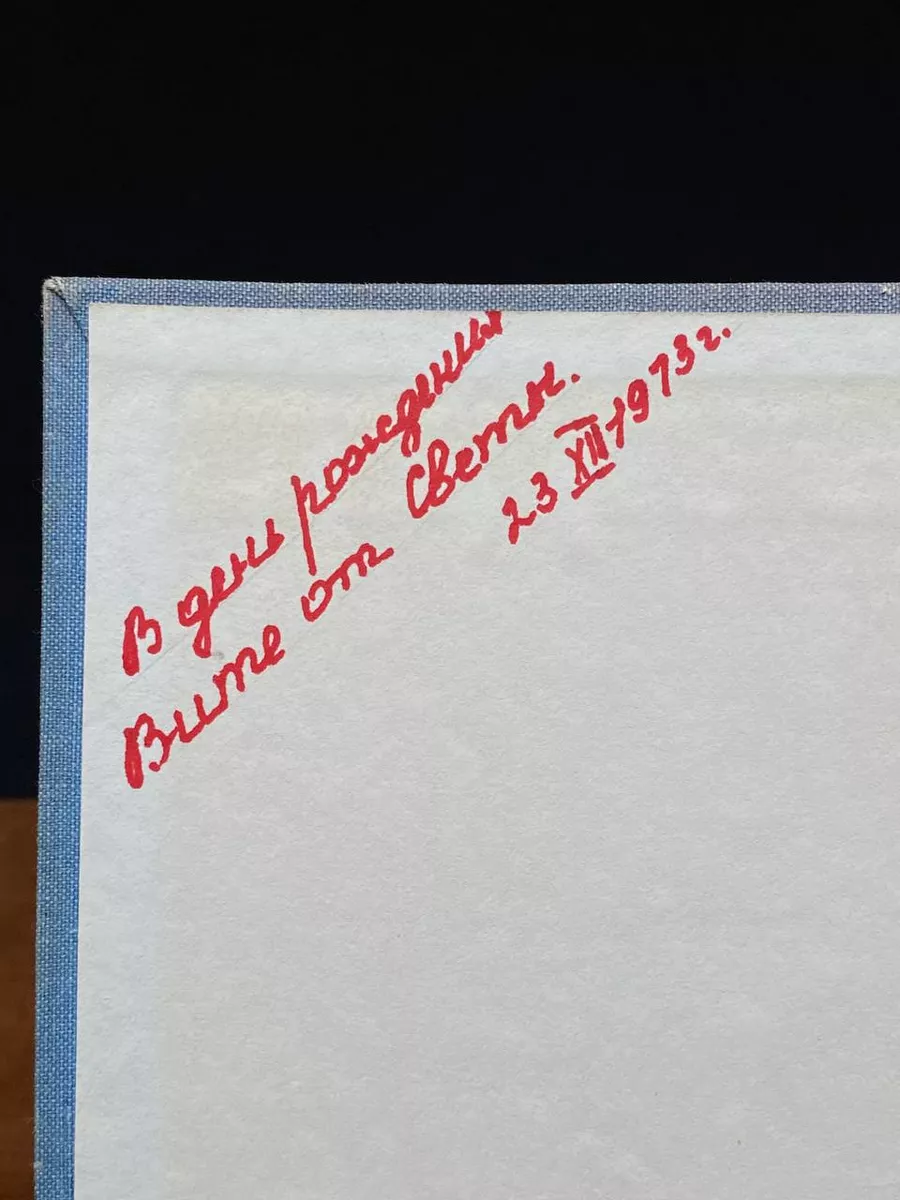 В день рождения
Вите от Светы.
23 XII 1973г.